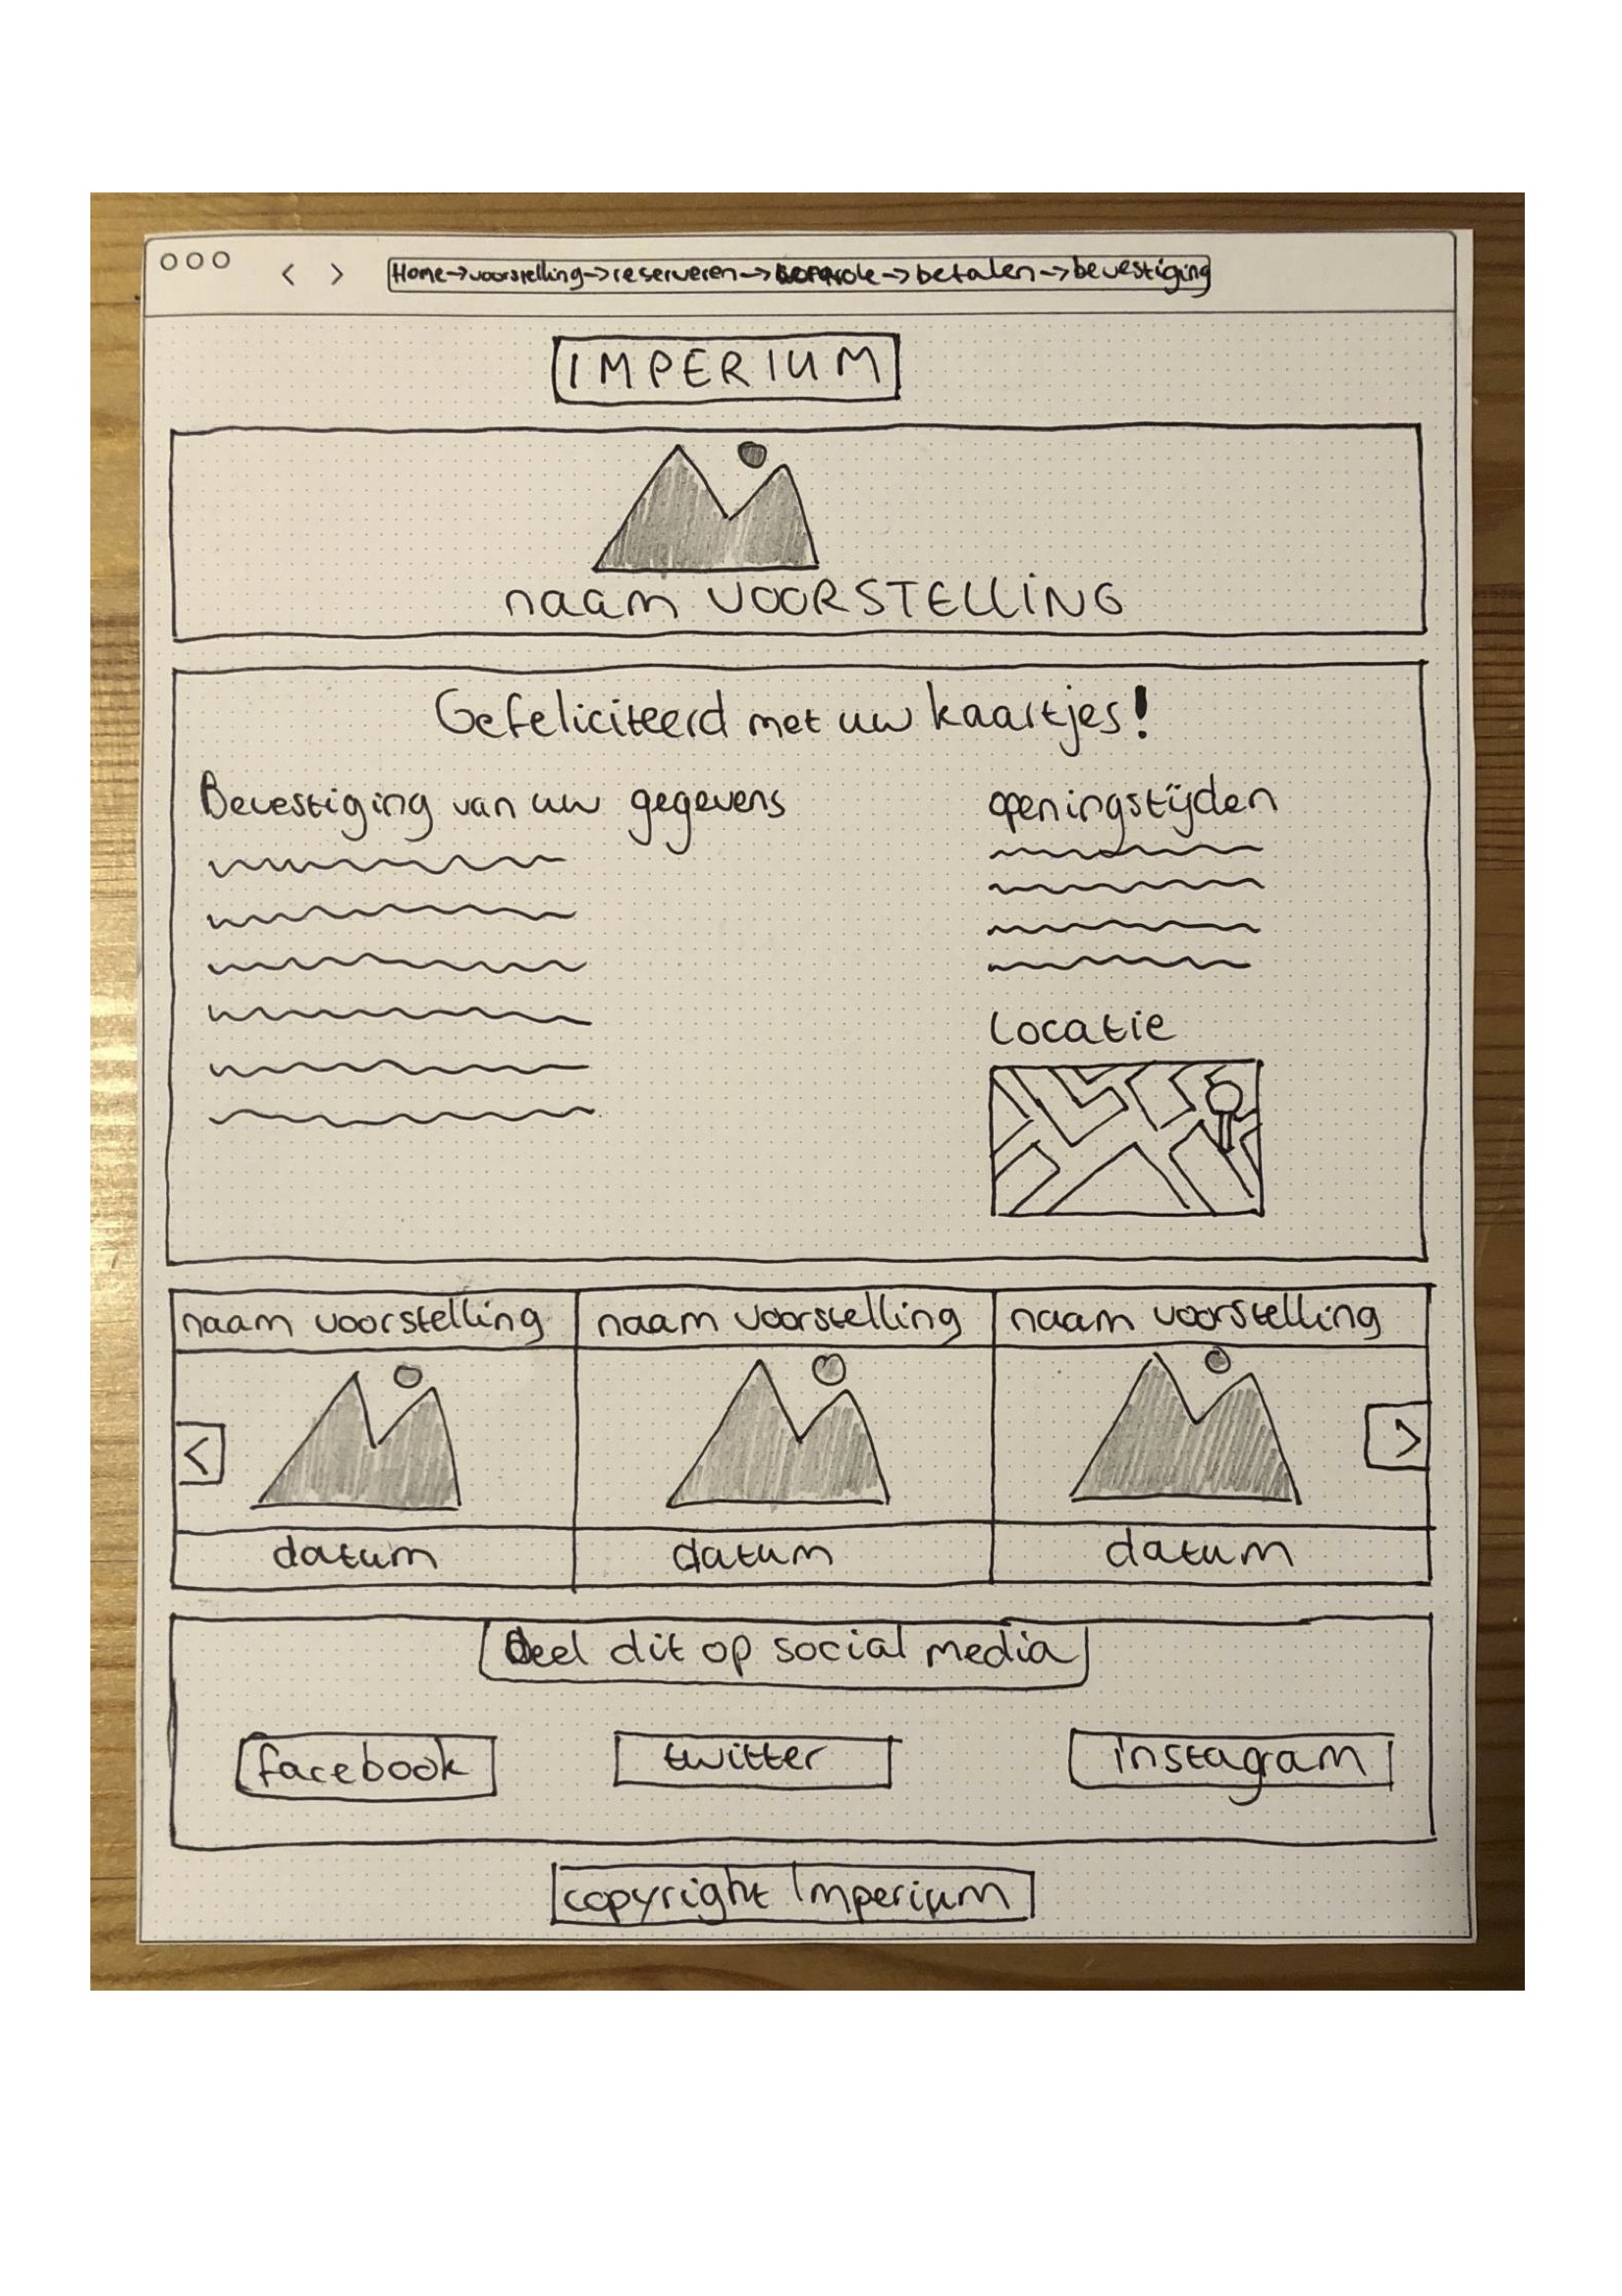 Home→voorstelling→reserveren→controle→betalen→bevestiging
IMPERIUM
naam VOORSTELLING
Gefeliciteerd met uw kaartjes!
Bevestiging van uw gegevens
openingstijden
Locatie
naam voorstelling
naam voorstelling
naam voorstelling
<
>
datum
datum
datum
Deel dit op social media
facebook
twitter
instagram
copyright Imperium